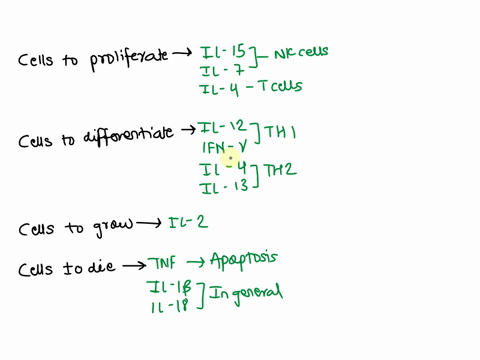 Cells to proliferate → IL-15
IL-7 ] - NK cells
IL-4 - T cells
Cells to differentiate → IL-12
IFN-γ ] TH1
IL-4
IL-13 ] TH2
Cells to grow → IL-2
Cells to die → TNF → Apoptosis
IL-1β
IL-18 ] In general